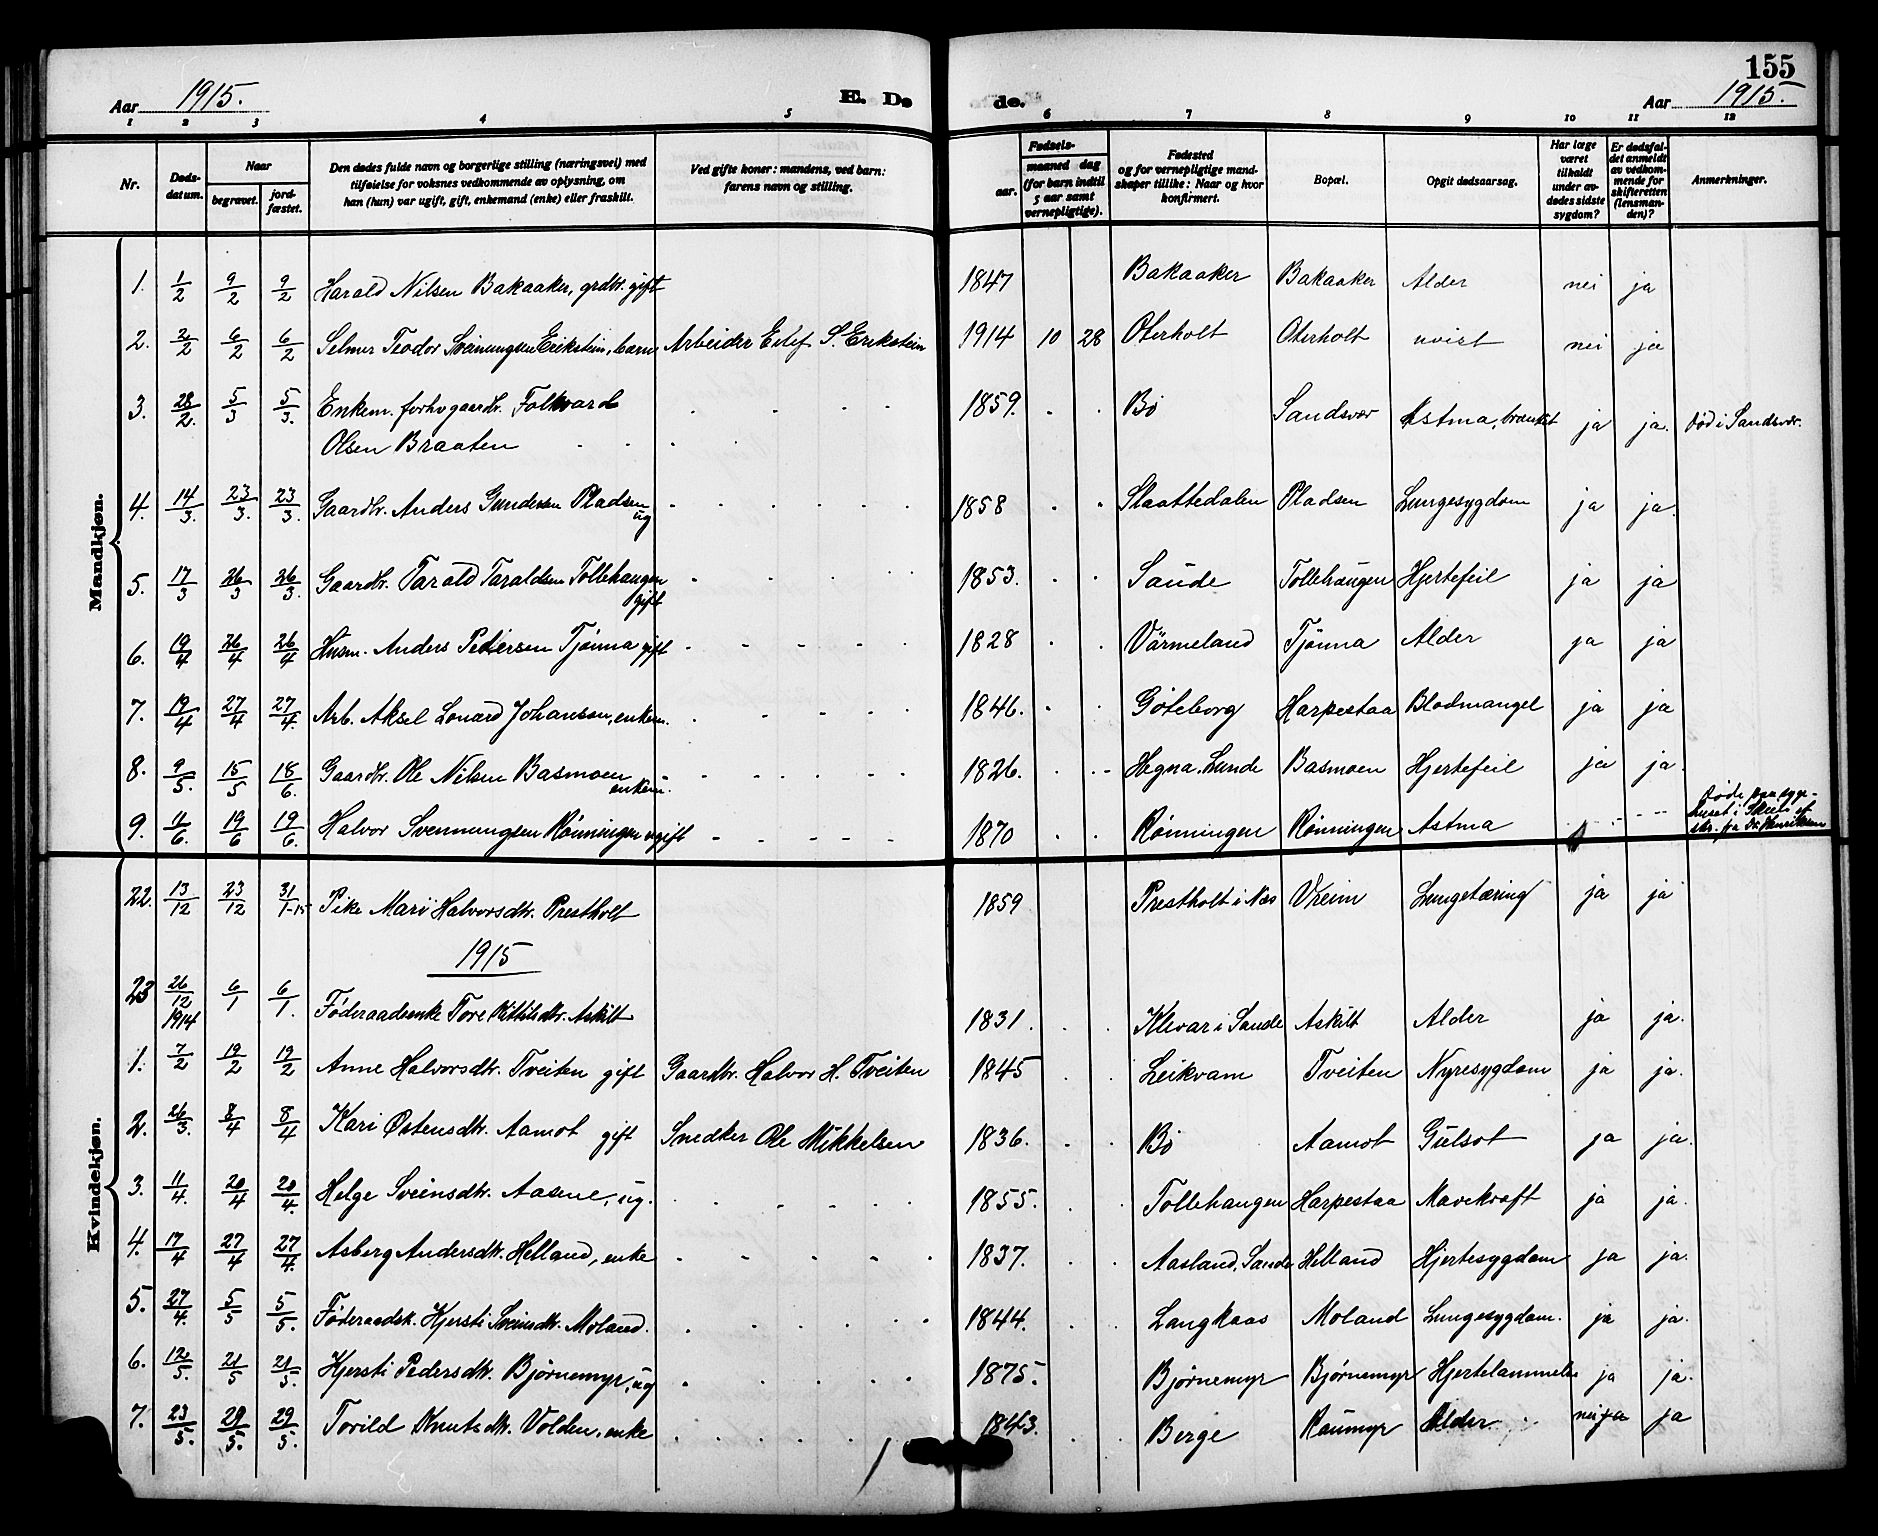 155
Aar 1915. E. Dø de. Aar 1915.
1 2 3 4 5 6 7 8 9 10 11 12
Nr. Dødsdatum. Naar begravet. jordfæstet. Den dødes fulde navn og borgerlige stilling (næringsvei) med tilføielse for voksnes vedkommende av oplysning, om han (hun) var ugift, gift, enkemand (enke) eller fraskilt. Ved gifte koner: mandens, ved barn: farens navn og stilling. Fødsels- aar. maaned dag (for barn indtil 5 aar samt vernepligtige). Fødested og for vernepligtige mandskaper tillike: Naar og hvor konfirmert. Bopæl. Opgit dødsaarsag. Har læge været tilkaldt under avdødes sidste sygdom? Er dødsfaldet anmeldt av vedkommende for skifteretten (lensmanden)? Anmerkninger.
Mandkjøn.
1. 1/2 9/2 9/2 Harald Nilsen Bakaaker, grdbr. gift 1847 Bakaaker Bakaaker Alder nei ja
2. 2/2 6/2 6/2 Selmer Teodor Sveinungsen Erikstein, barn Arbeider Eilef S. Erikstein 1914 10 28 Oterholt Oterholt uvist nei ja
3. 28/2. 5/3 5/3. Enkem. forhv gaardbr. Folkvard 1859. Bø Sandsvær Astma, bronkit ja ja. Død i Sandsvær.
Olsen Braaten
4. 14/3. 23/3. 23/3. Gaardbr. Anders Gundersen Pladsen ug 1858 Slaattedalen Pladsen Lungesygdom ja ja.
5. 17/3 26/3 26/3. Gaardbr. Tarald Taraldsen Tollehaugen gift 1853. Saude Tollehaugen Hjertefeil ja ja
6. 19/4 26/4 26/4 Husm. Anders Pedersen Tjønna gift 1828 Värmeland Tjønna Alder ja ja
7. 19/4 27/4 27/4. Arb. Aksel Lonard Johansson, enkem. 1846. Göteborg Harpestaa Blodmangel ja ja
8. 9/5. 15/5 18/6. Gaardbr. Ole Nilsen Basmoen enkem. 1826. Hegna, Lunde Basmoen Hjertefeil ja ja.
9. 11/6. 19/6 19/6. Halvor Svennungsen Rønningen ugift 1870 Rønningen Rønningen Astma Døde paa sygehuset i Skien
Kvindekjøn.
22. 13/12 23/12 31/1-15 Pike Mari Halvorsdtr. Prestholt 1859 Prestholt i Næs Vreim Lungetæring ja ja
1915
23 26/12 1914 6/1 6/1. Føderaadsenke Tore Kittilsdtr. Askilt 1831. Klevar i Saude Askilt Alder ja ja.
1. 7/2 19/2 19/2 Anne Halvorsdtr. Tveiten gift Gaardbr. Halvor H. Tveiten 1845 Leikvam Tveiten Nyresygdom ja ja.
2. 26/3. 8/4 8/4 Kari Østensdtr. Aamot gift Snedker Ole Mikkelsen 1836. Bø Aamot Gulsot ja ja.
3. 11/4. 20/4 20/4. Helge Sveinsdtr. Aasene, ug. 1855. Tollehaugen Harpestaa Mavekræft ja ja.
4. 17/4 27/4 27/4. Asberg Andersdtr. Helland, enke 1837. Aasland, Saude Helland Hjertesygdom ja ja.
5. 27/4. 5/5 5/5. Føderaadsk. Kjersti Sveinsdtr. Moland. 1844. Langkaas Moland Lungesygdom. ja ja.
6. 12/5. 21/5 21/5. Kjersti Pedersdtr. Bjørnemyr, ug 1875. Bjørnemyr Bjørnemyr Hjertelammelse ja ja.
7. 23/5. 29/5. 29/5. Torild Knutsdtr. Volden, enke 1843. Berge Raumyr Alder nei ja ja